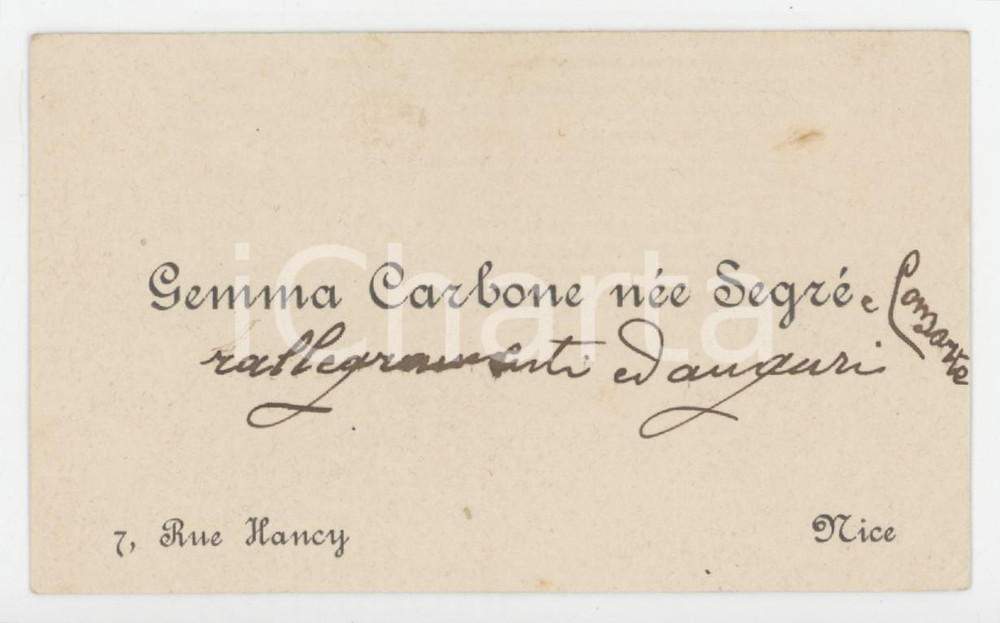 iCharta
Gemma Carbone née Segré e Consorte
rallegramenti ed auguri
7, Rue Hancy
Nice